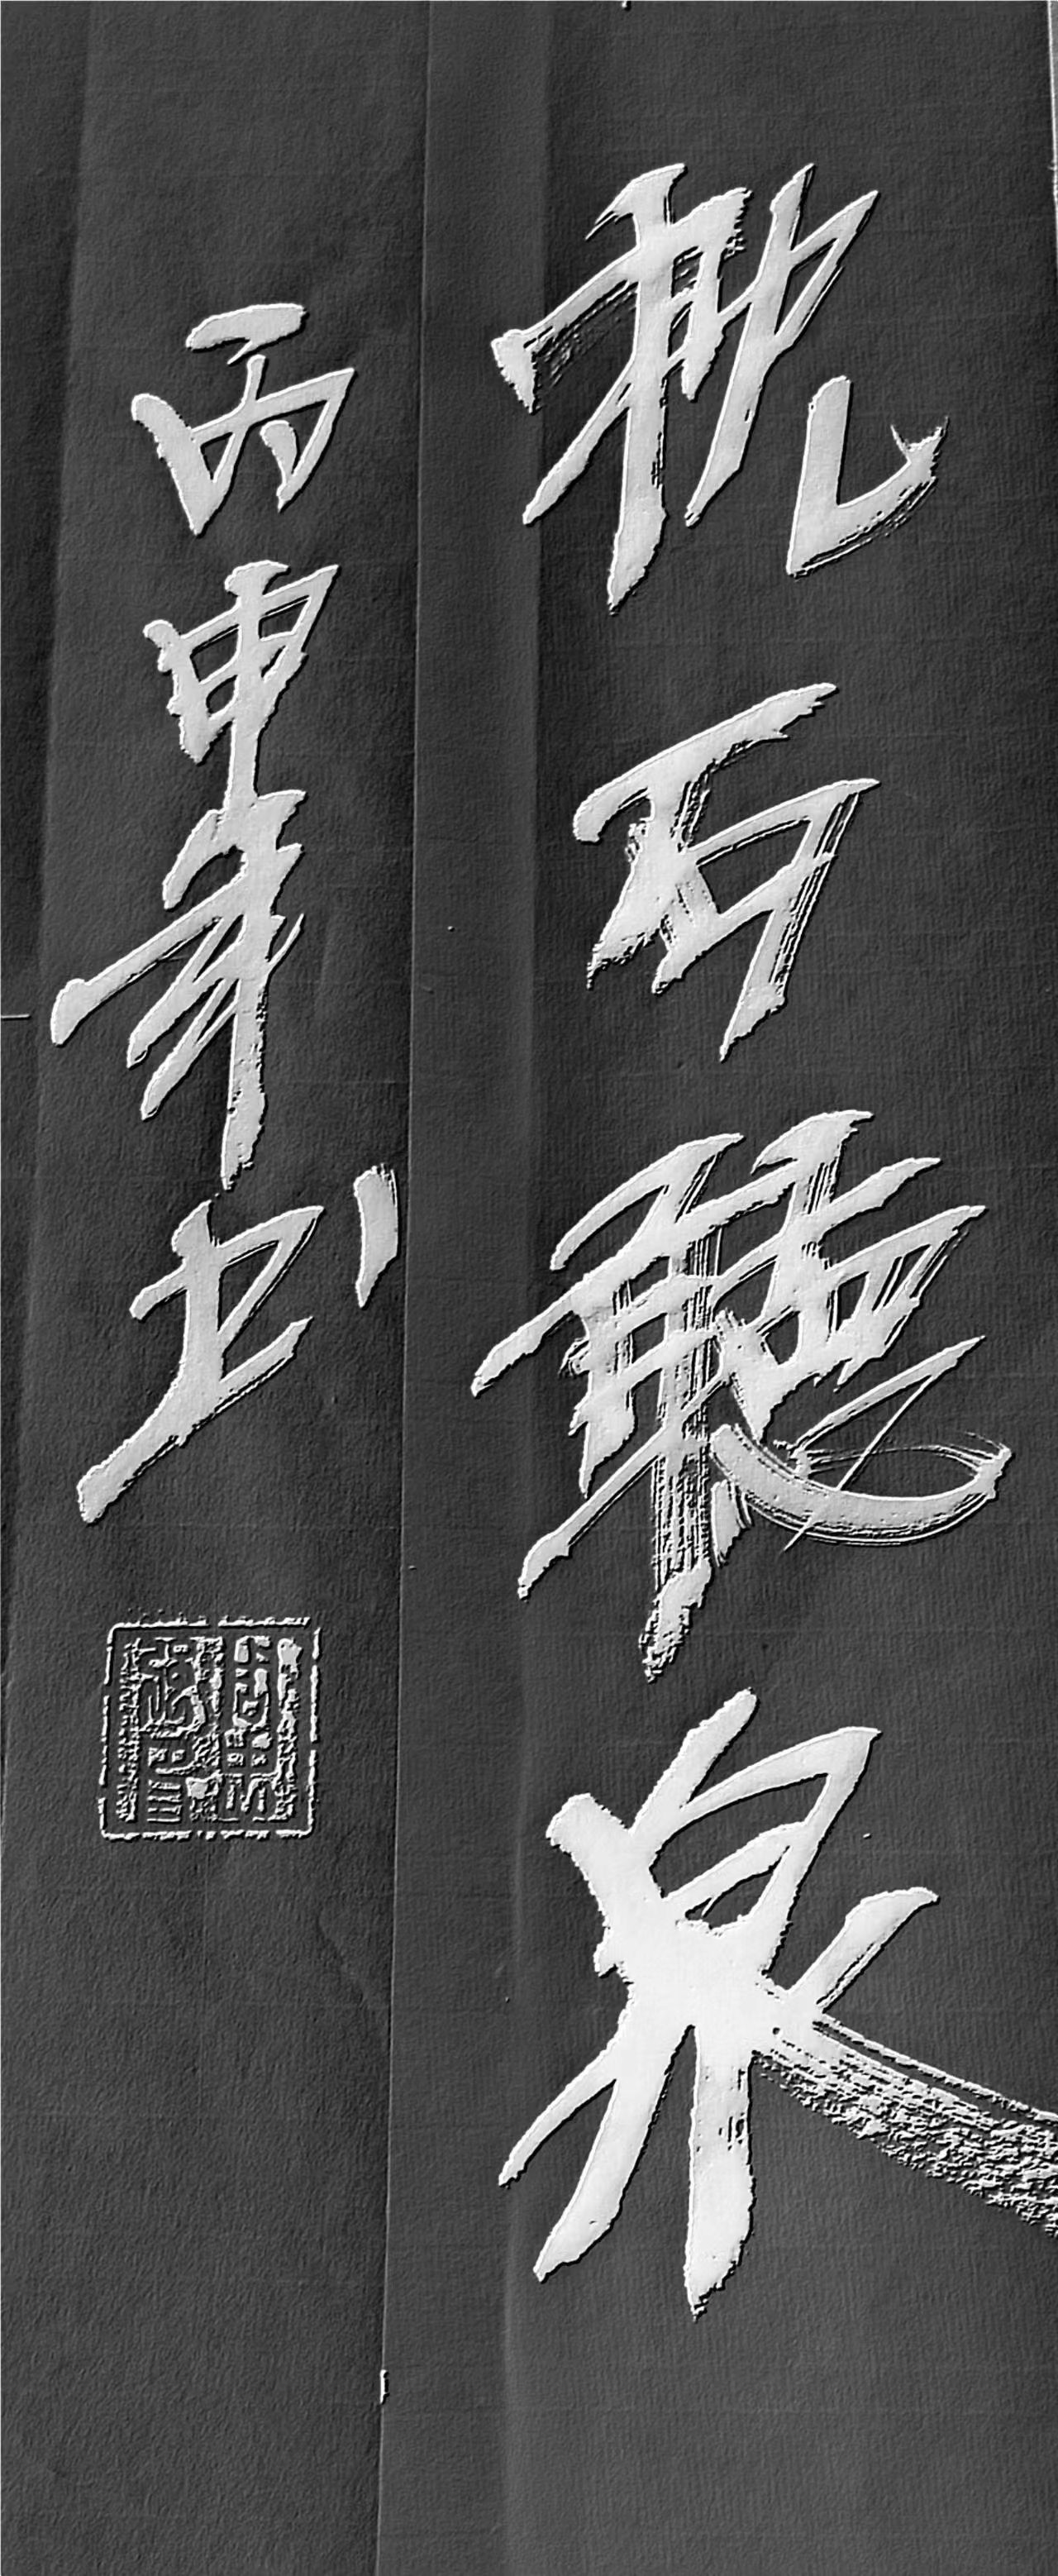 枕石聽泉
丙申年书